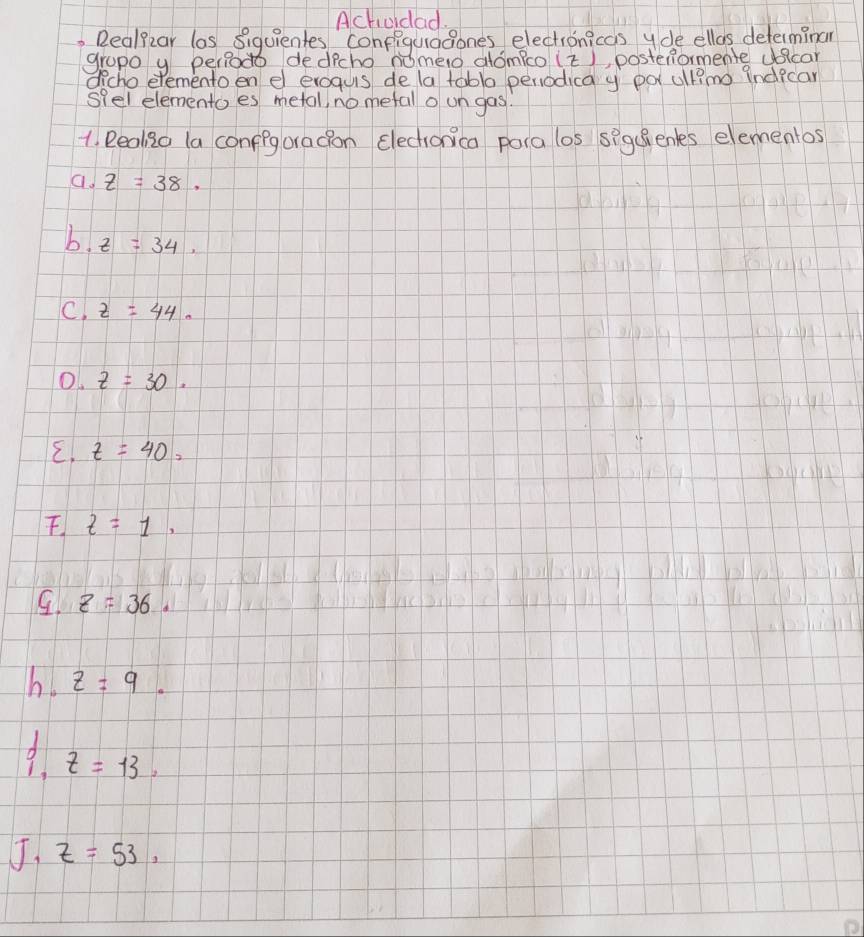 Actividad.
• Realizar las siguientes configuraciones electrónicas y de ellas determinar
grupo y periodo de dicho número atómico (z), posteriormente ubicar
dicho elemento en el eroquis de la tabla periodica y por ultimo indicar
si el elemento es metal, no metal o un gas.
1. Realiza la configuracion Electronica para los siguientes elementos
a. z = 38.
b. z = 34.
C. z = 44.
D. z = 30.
E. z = 40.
F. z = 1.
G. z = 36.
h. z = 9.
i. z = 13.
J. z = 53.